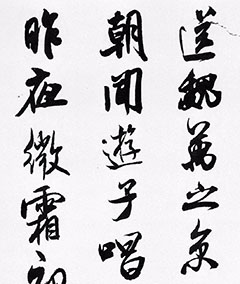 送魏萬之京
朝聞遊子唱
昨夜微霜初